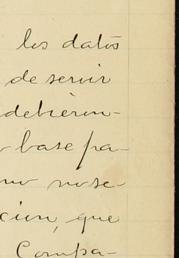 los datos
de servir
debieron-
base pa-
no se-
cion, que
Compa-